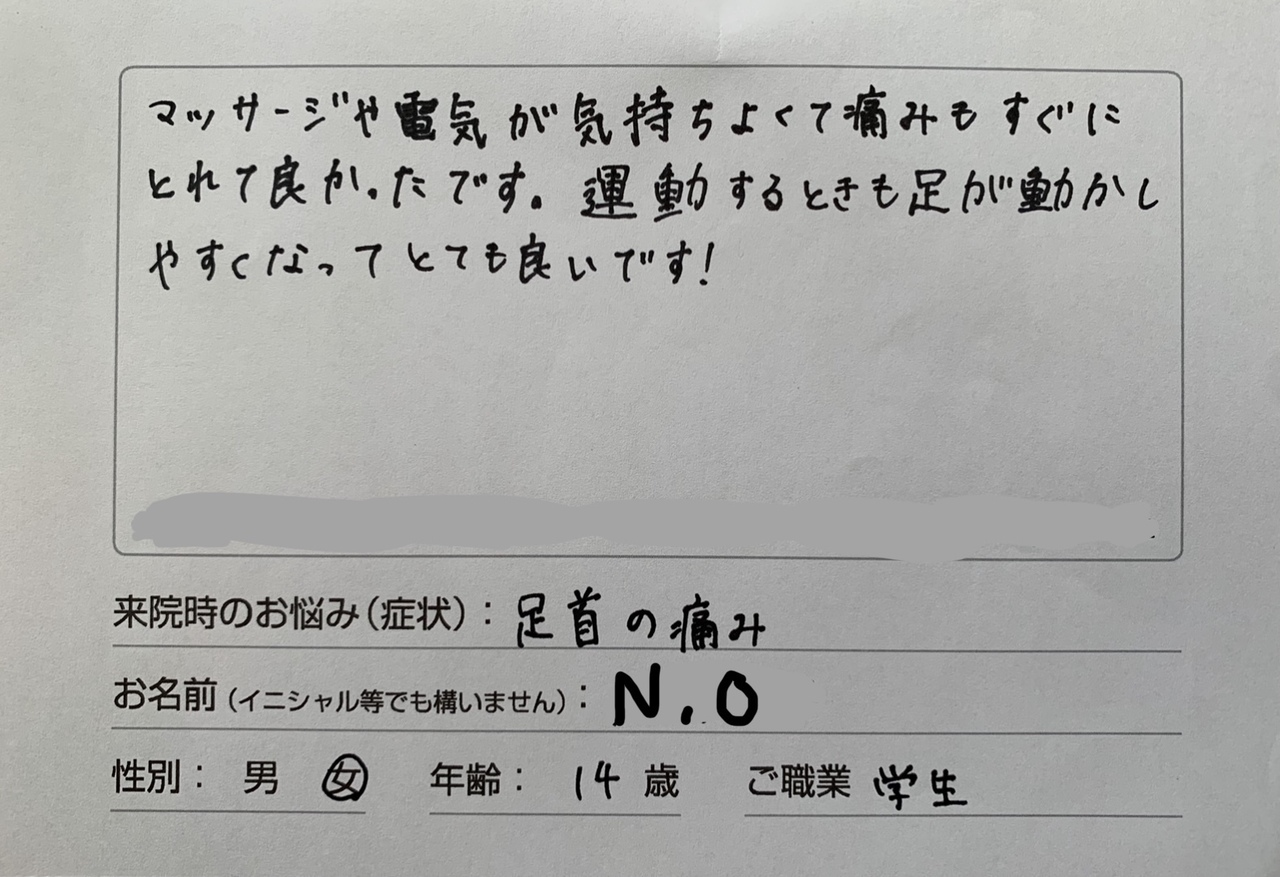 マッサージや電気が気持ちよくて痛みもすぐに
とれて良かったです。運動するときも足が動かし
やすくなってとても良いです!
来院時のお悩み(症状):足首の痛み
お名前(イニシャル等でも構いません):N.O
性別: 男 女 年齢: 14 歳 ご職業 学生